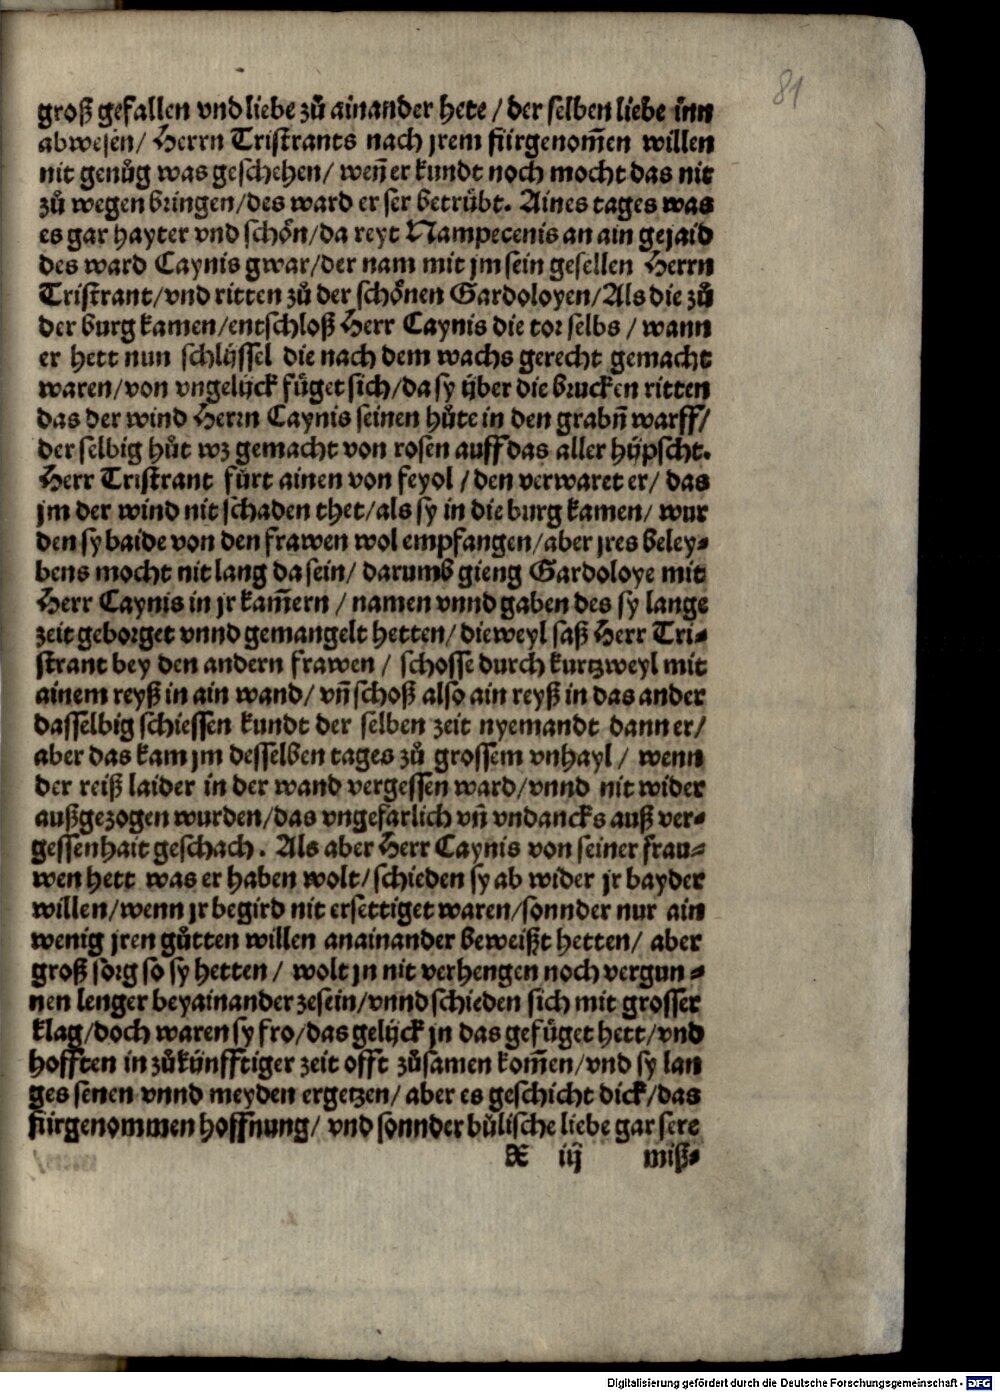 81
groß gefallen vnd liebe zů ainander hete / der selben liebe inn
abwesen / Herrn Tristrants nach jrem fürgenom̃en willen
nit genůg was geschehen / weñ er kundt noch mocht das nit
zů wegen bringen / des ward er ser betrübt. Aines tages was
es gar hayter vnd schoͤn / da reyt Nampecenis an ain gejaid
des ward Caynis gwar / der nam mit jm sein gesellen Herrn
Tristrant / vnd ritten zů der schoͤnen Gardoloyen / Als die zů
der burg kamen / entschloß Herr Caynis die tor selbs / wann
er hett nun schlÿssel die nach dem wachs gerecht gemacht
waren / von vngelÿck fůget sich / da sy ÿber die brucken ritten
das der wind Herrn Caynis seinen hůte in den grabñ warff /
der selbig hůt wz gemacht von rosen auff das aller hÿpscht.
Herr Tristrant fůrt ainen von feyol / den verwaret er / das
jm der wind nit schaden thet / als sy in die burg kamen / wur
den sy baide von den frawen wol empfangen / aber jres beley⸗
bens mocht nit lang da sein / darumb gieng Gardoloye mit
Herr Caynis in jr kam̃ern / namen vnnd gaben des sy lange
zeit geborget vnnd gemangelt hetten / dieweyl saß Herr Tri⸗
strant bey den andern frawen / schosse durch kurtzweyl mit
ainem reyß in ain wand / vñ schoß also ain reyß in das ander
dasselbig schiessen kundt der selben zeit nyemandt dann er /
aber das kam jm desselben tages zů grossem vnhayl / wenn
der reiß laider in der wand vergessen ward / vnnd nit wider
außgezogen wurden / das vngefarlich vñ vndancks auß ver⸗
gessenhait geschach. Als aber Herr Caynis von seiner frau⸗
wen hett was er haben wolt / schieden sy ab wider jr bayder
willen / wenn jr begird nit ersettiget waren / sonnder nur ain
wenig jren gůtten willen anainander beweißt hetten / aber
groß sorg so sy hetten / wolt jn nit verhengen noch vergun⸗
nen lenger beyainander zesein / vnnd schieden sich mit grosser
klag / doch waren sy fro / das gelÿck jn das gefůget hett / vnd
hofften in zůkÿnfftiger zeit offt zůsamen kom̃en / vnd sy lan
ges senen vnnd meyden ergetzen / aber es geschicht dick / das
fürgenommen hoffnung / vnd sonnder bůlische liebe gar sere
X iij miß⸗
Digitalisierung gefördert durch die Deutsche Forschungsgemeinschaft - DFG